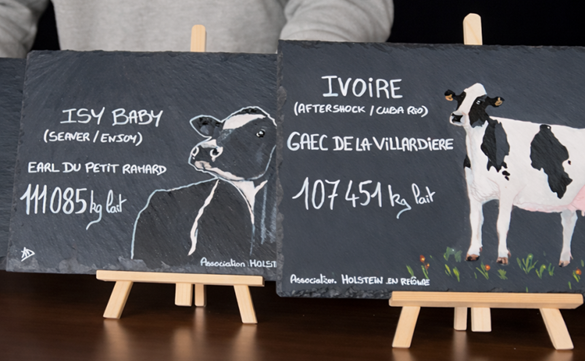 ISY BABY
(SEAVER / ENJOY)
EARL DU PETIT RAMARD
111 085 kg lait
Association HOLST
IVOIRE
(AFTERSHOCK / CUBA RIO)
GAEC DE LA VILLARDIERE
107 451 kg lait
Association HOLSTEIN EN